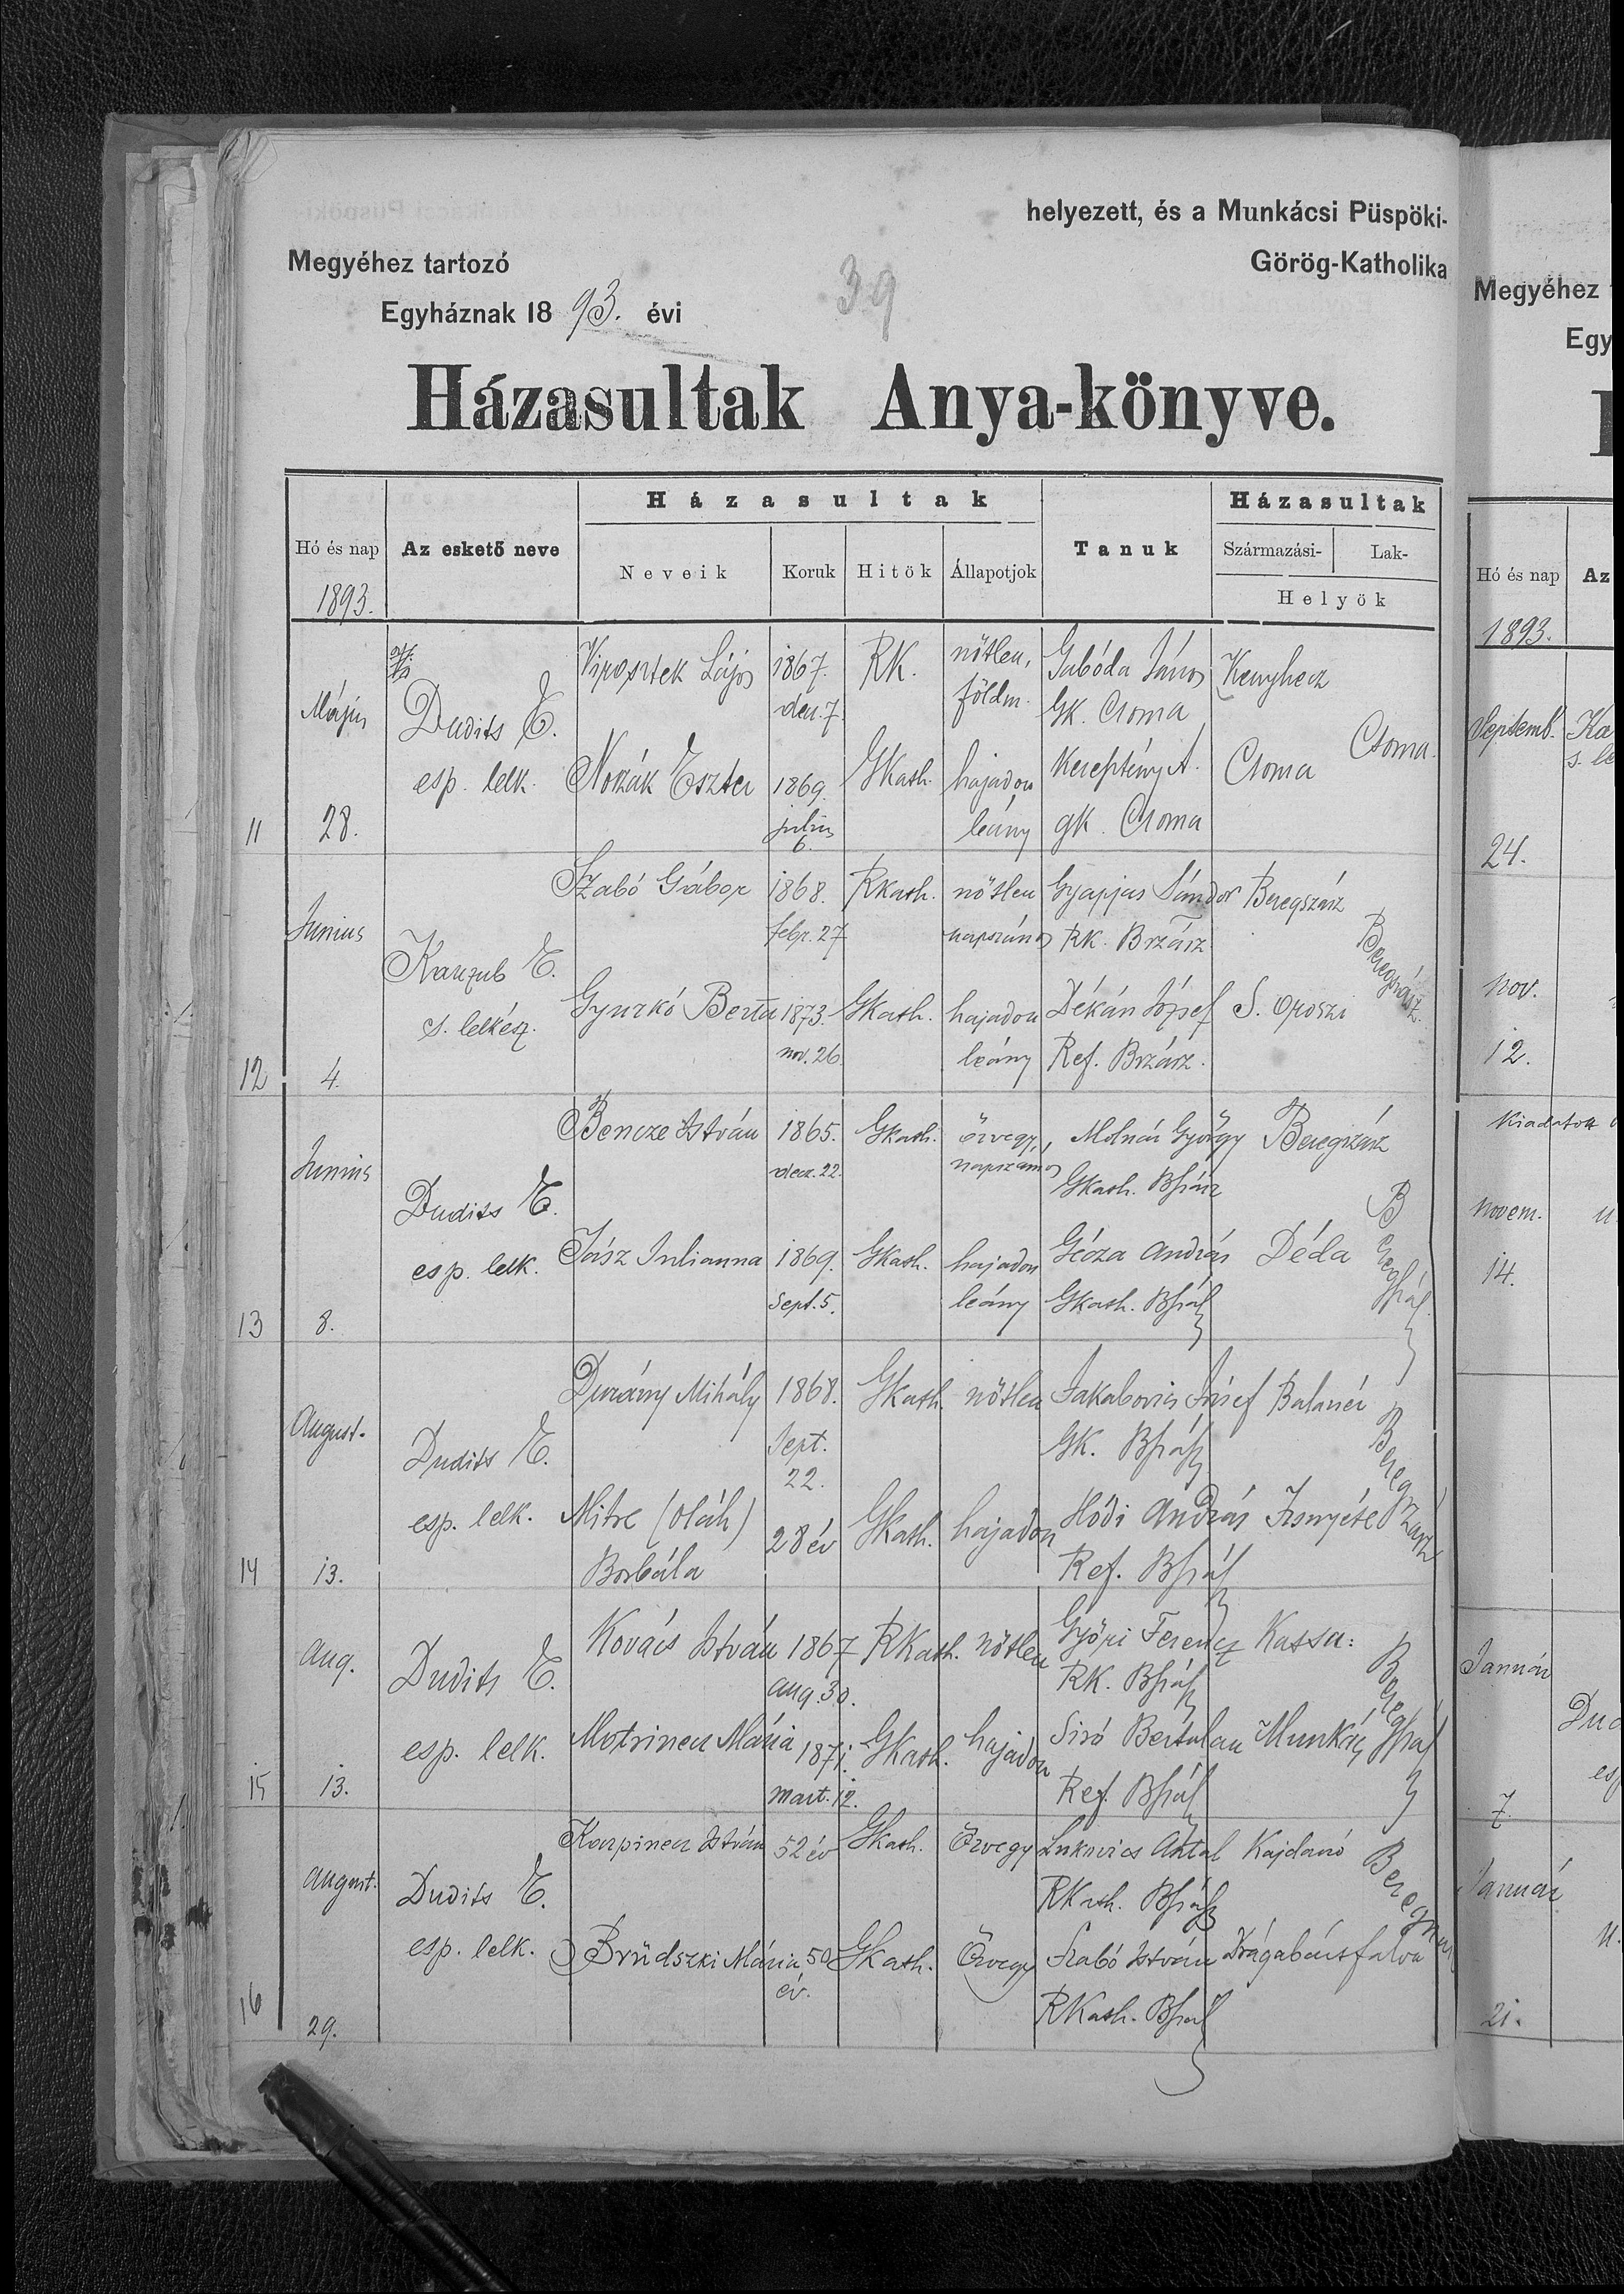 helyezett, és a Munkácsi Püspöki-
Megyéhez tartozó
Görög-Katholika
Egyháznak 1893. évi
39
Házasultak Anya-könyve.
Hó és nap
1893.
Az eskető neve
Házasultak
Neveik
Koruk
Hitök
Állapotjok
Tanuk
Házasultak
Származási-
Lak-
Helyök
11
Május
28.
Dudits E.
esp. lelk.
Lajos
1867.
dec. 7.
RK.
nőtlen,
földm.
Gabóda János
GK. Csoma
Kenyhecz
Csoma.
Eszter
1869.
julius
6.
GKath.
hajadon
leány
Keresztény A.
gk. Csoma
Csoma
12
Junius
4.
E.
s. lelkész.
Szabó Gábor
1868.
febr. 27
RKath.
nőtlen
napszámos
Gyapjas Sándor
RK. Brzász
Beregszász
Beregszász.
Gyurkó Berta
1873.
nov. 26.
GKath.
hajadon
leány
Dékán József
Ref. Brzász.
S. Oroszi
13
Junius
8.
Dudits E.
esp. lelk.
Bencze István
1865.
decz. 22.
Gkath.
özvegy,
napszámos
Molnár György
Gkath. Bszász
Beregszász
Beregszász.
Jász Julianna
1869.
Sept. 5.
Gkath.
hajadon
leány
Géza András
Gkath. Bszász
Déda
14
August.
13.
Dudits E.
esp. lelk.
Durány Mihály
1868.
Sept.
22.
Gkath.
nőtlen
Jakabovics József
GK. Bszász
Beregszász
Mitre (oláh)
Borbála
28 év
GKath.
hajadon
Hódi András
Ref. Bszász
Izsnyéte
15
Aug.
13.
Dudits E.
esp. lelk.
Kovács István
1867
aug. 30.
RKath.
nőtlen
Győri Ferencz
RK. Bszász
Kassa:
Beregszász
Mária
1871.
mart. 12.
GKath.
hajadon
Siró Bertalan
Ref. Bszász
Munkács
16
August.
29.
Dudits E.
esp. lelk.
Karpinecz István
52 év
Gkath.
Özvegy
Lukovics Antal
RKath. Bszász
Kajdanó
Mária
50
év.
GKath.
Özvegy
Szabó István
RKath. Bszász
Drágabártfalva
Megyéhez
Egy
Hó és nap
1893.
Az
Septemb.
24.
nov.
12.
novem.
14.
Január
7.
Január
21.